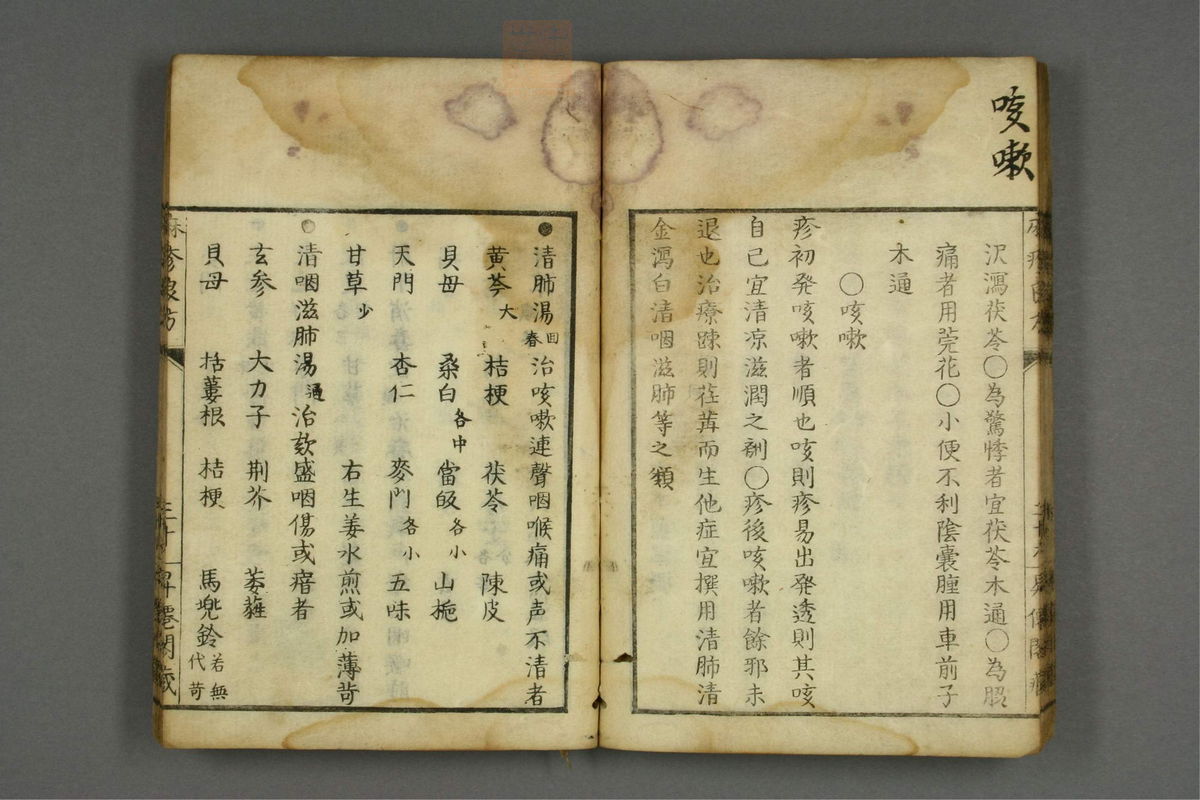 咳嗽
沢瀉茯苓〇為驚悸者宜茯苓木通〇為腹
痛者用芫花〇小便不利陰囊腫用車前子
木通
〇咳嗽
疹初発咳嗽者順也咳則疹易出発透則其咳
自已宜清凉滋潤之剤〇疹後咳嗽者餘邪未
退也治療踈則荏苒而生他症宜撰用清肺清
金瀉白清咽滋肺等之類
清肺湯 回春 治咳嗽連聲咽喉痛或声不清者
黄芩大 桔梗 茯苓 陳皮
貝母 桑白各中 當皈各小 山梔
天門 杏仁 麥門各小 五味
甘草少 右生姜水煎或加薄苛
清咽滋肺湯 治欬盛咽傷或瘖者
玄参 大力子 荆芥 萎蕤
貝母 括蔞根 桔梗 馬兜鈴若無代苛
麻疹良方